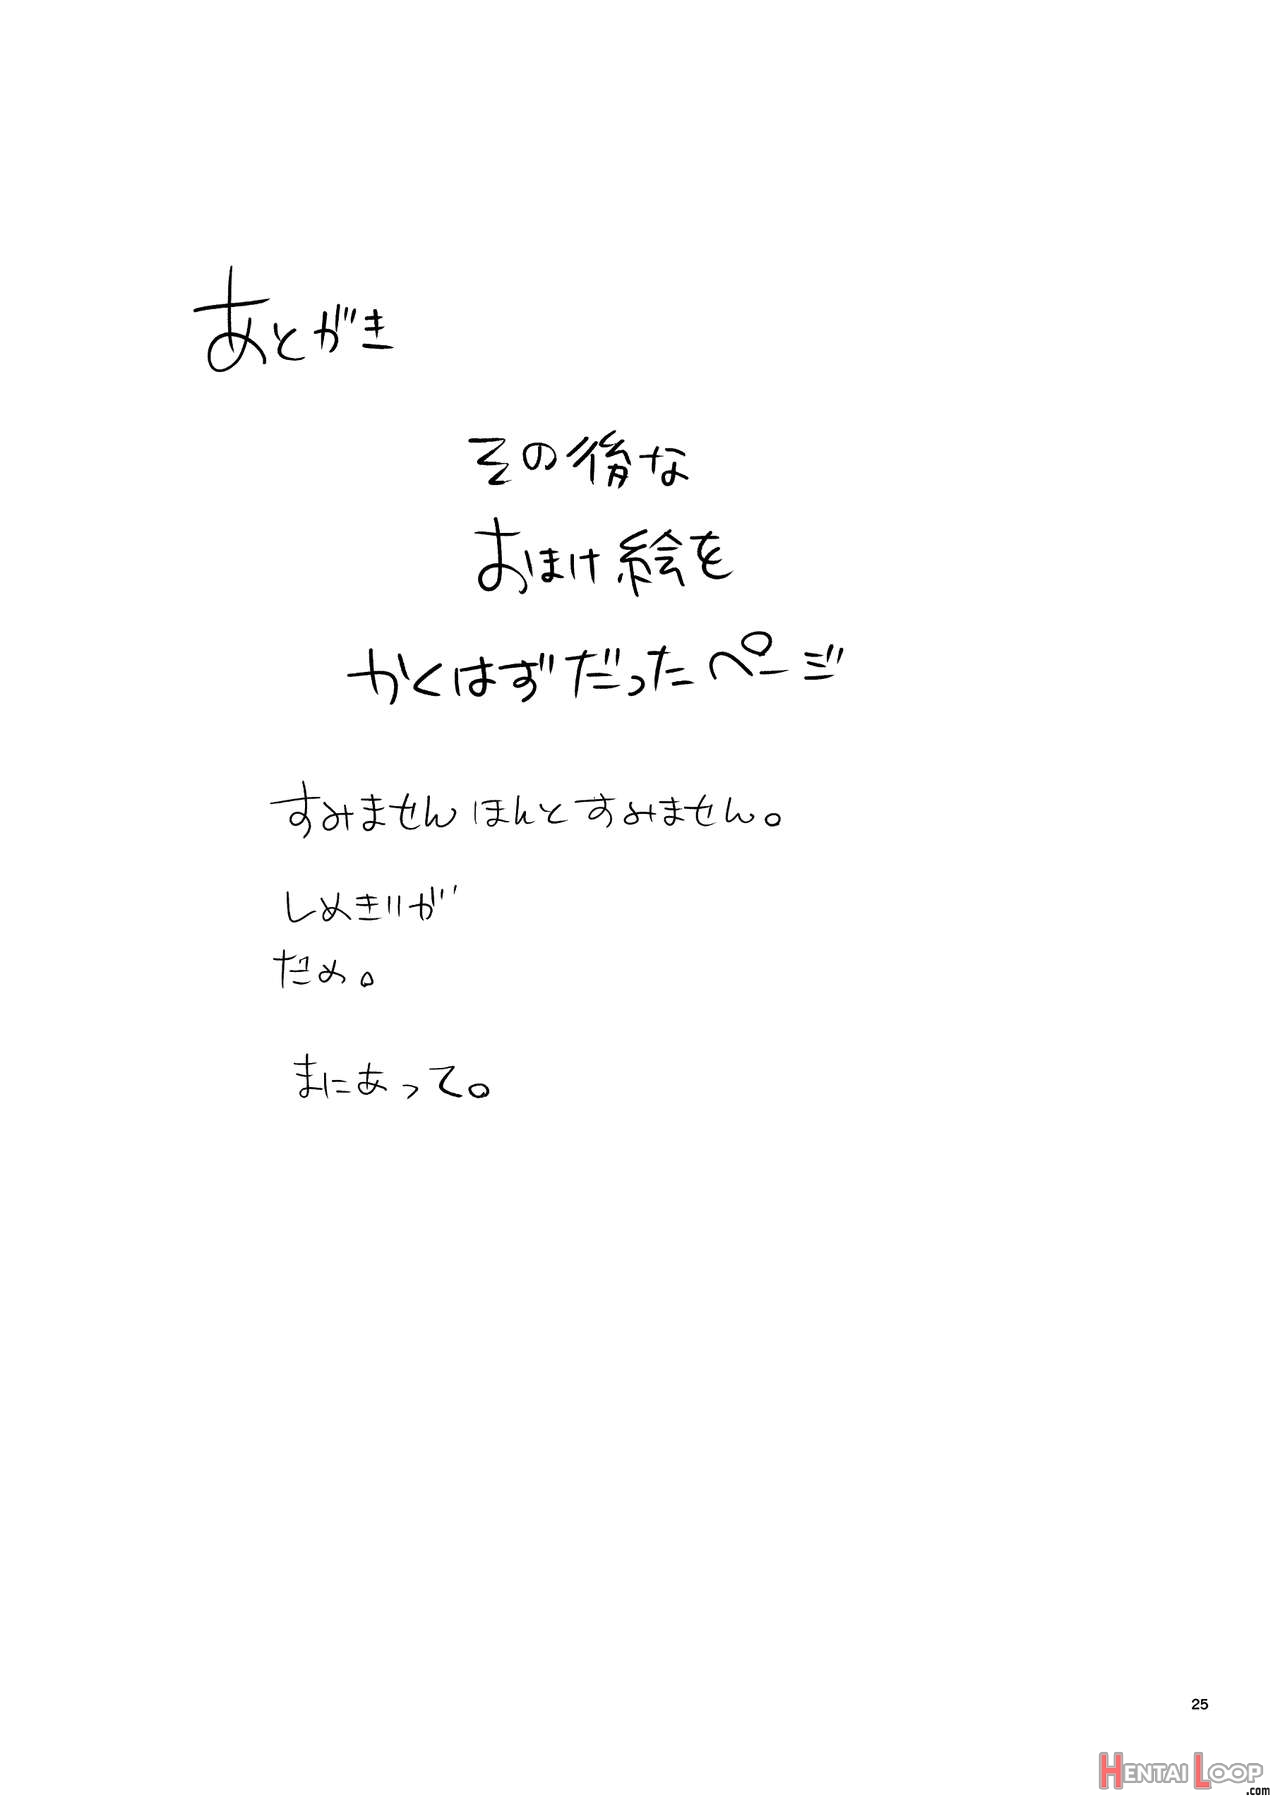 あとがき
その後な
おまけ絵を
かくはずだったページ
すみませんほんとすみません。
しめきりが
だめ。
まにあって。
25
HENTAI LOOP
.com